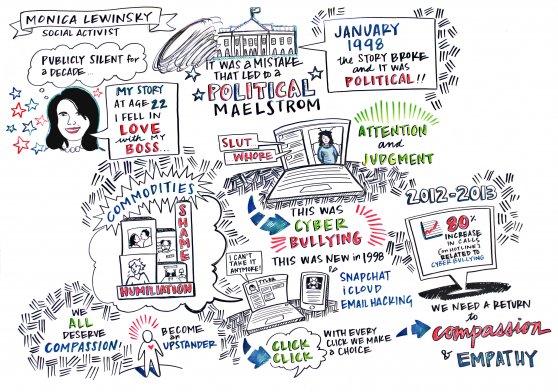 MONICA LEWINSKY
SOCIAL ACTIVIST
PUBLICLY SILENT for
a DECADE...
MY STORY
AT AGE 22
I FELL IN
LOVE
with MY
BOSS...
IT WAS A MISTAKE
THAT LED to a
POLITICAL
MAELSTROM
JANUARY
1998
the STORY BROKE
and IT WAS
POLITICAL!!
SLUT
WHORE
ATTENTION
and
JUDGMENT
COMMODITIES
SHAME
HUMILIATION
THIS WAS
CYBER
BULLYING
THIS WAS NEW in 1998
I CAN'T
TAKE IT
ANYMORE!
TYLER
SNAPCHAT
iCLOUD
EMAIL HACKING
2012-2013
80%
INCREASE
IN CALLS
(on HOTLINE)
RELATED to
CYBERBULLYING
WE
ALL
DESERVE
COMPASSION!
BECOME
an
UPSTANDER
CLICK
CLICK
WITH EVERY
CLICK WE MAKE
a CHOICE
WE NEED A RETURN
to
compassion
& EMPATHY